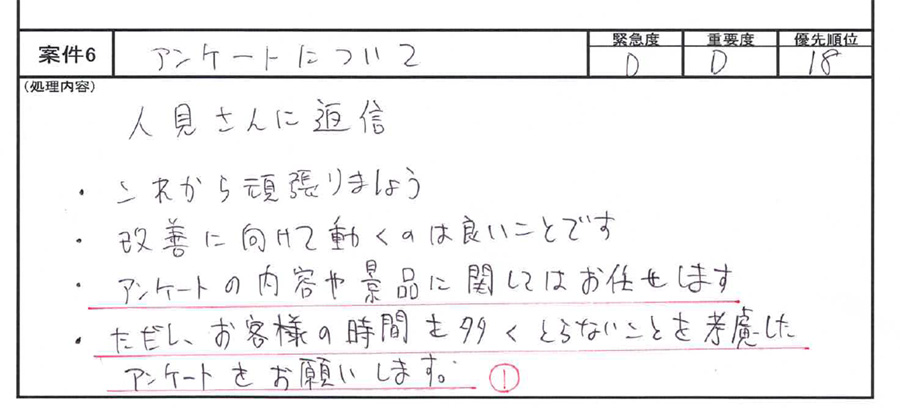 案件6 アンケートについて 緊急度 D 重要度 D 優先順位 18
(処理内容)
人見さんに返信
・これから頑張りましょう
・改善に向けて動くのは良いことです
・アンケートの内容や景品に関してはお任せします
・ただし、お客様の時間を多くとらないことを考慮した
アンケートをお願いします。 ①